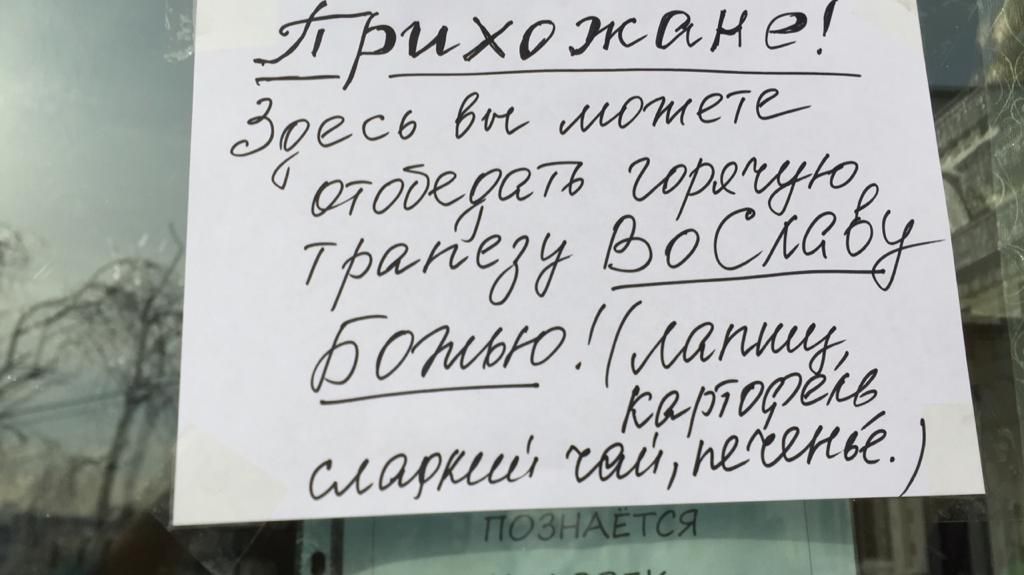 Прихожане!
Здесь вы можете
отобедать горячую
трапезу Во Славу
Божью! (лапшу,
картофель
сладкий чай, печенье.)
ПОЗНАЁТСЯ